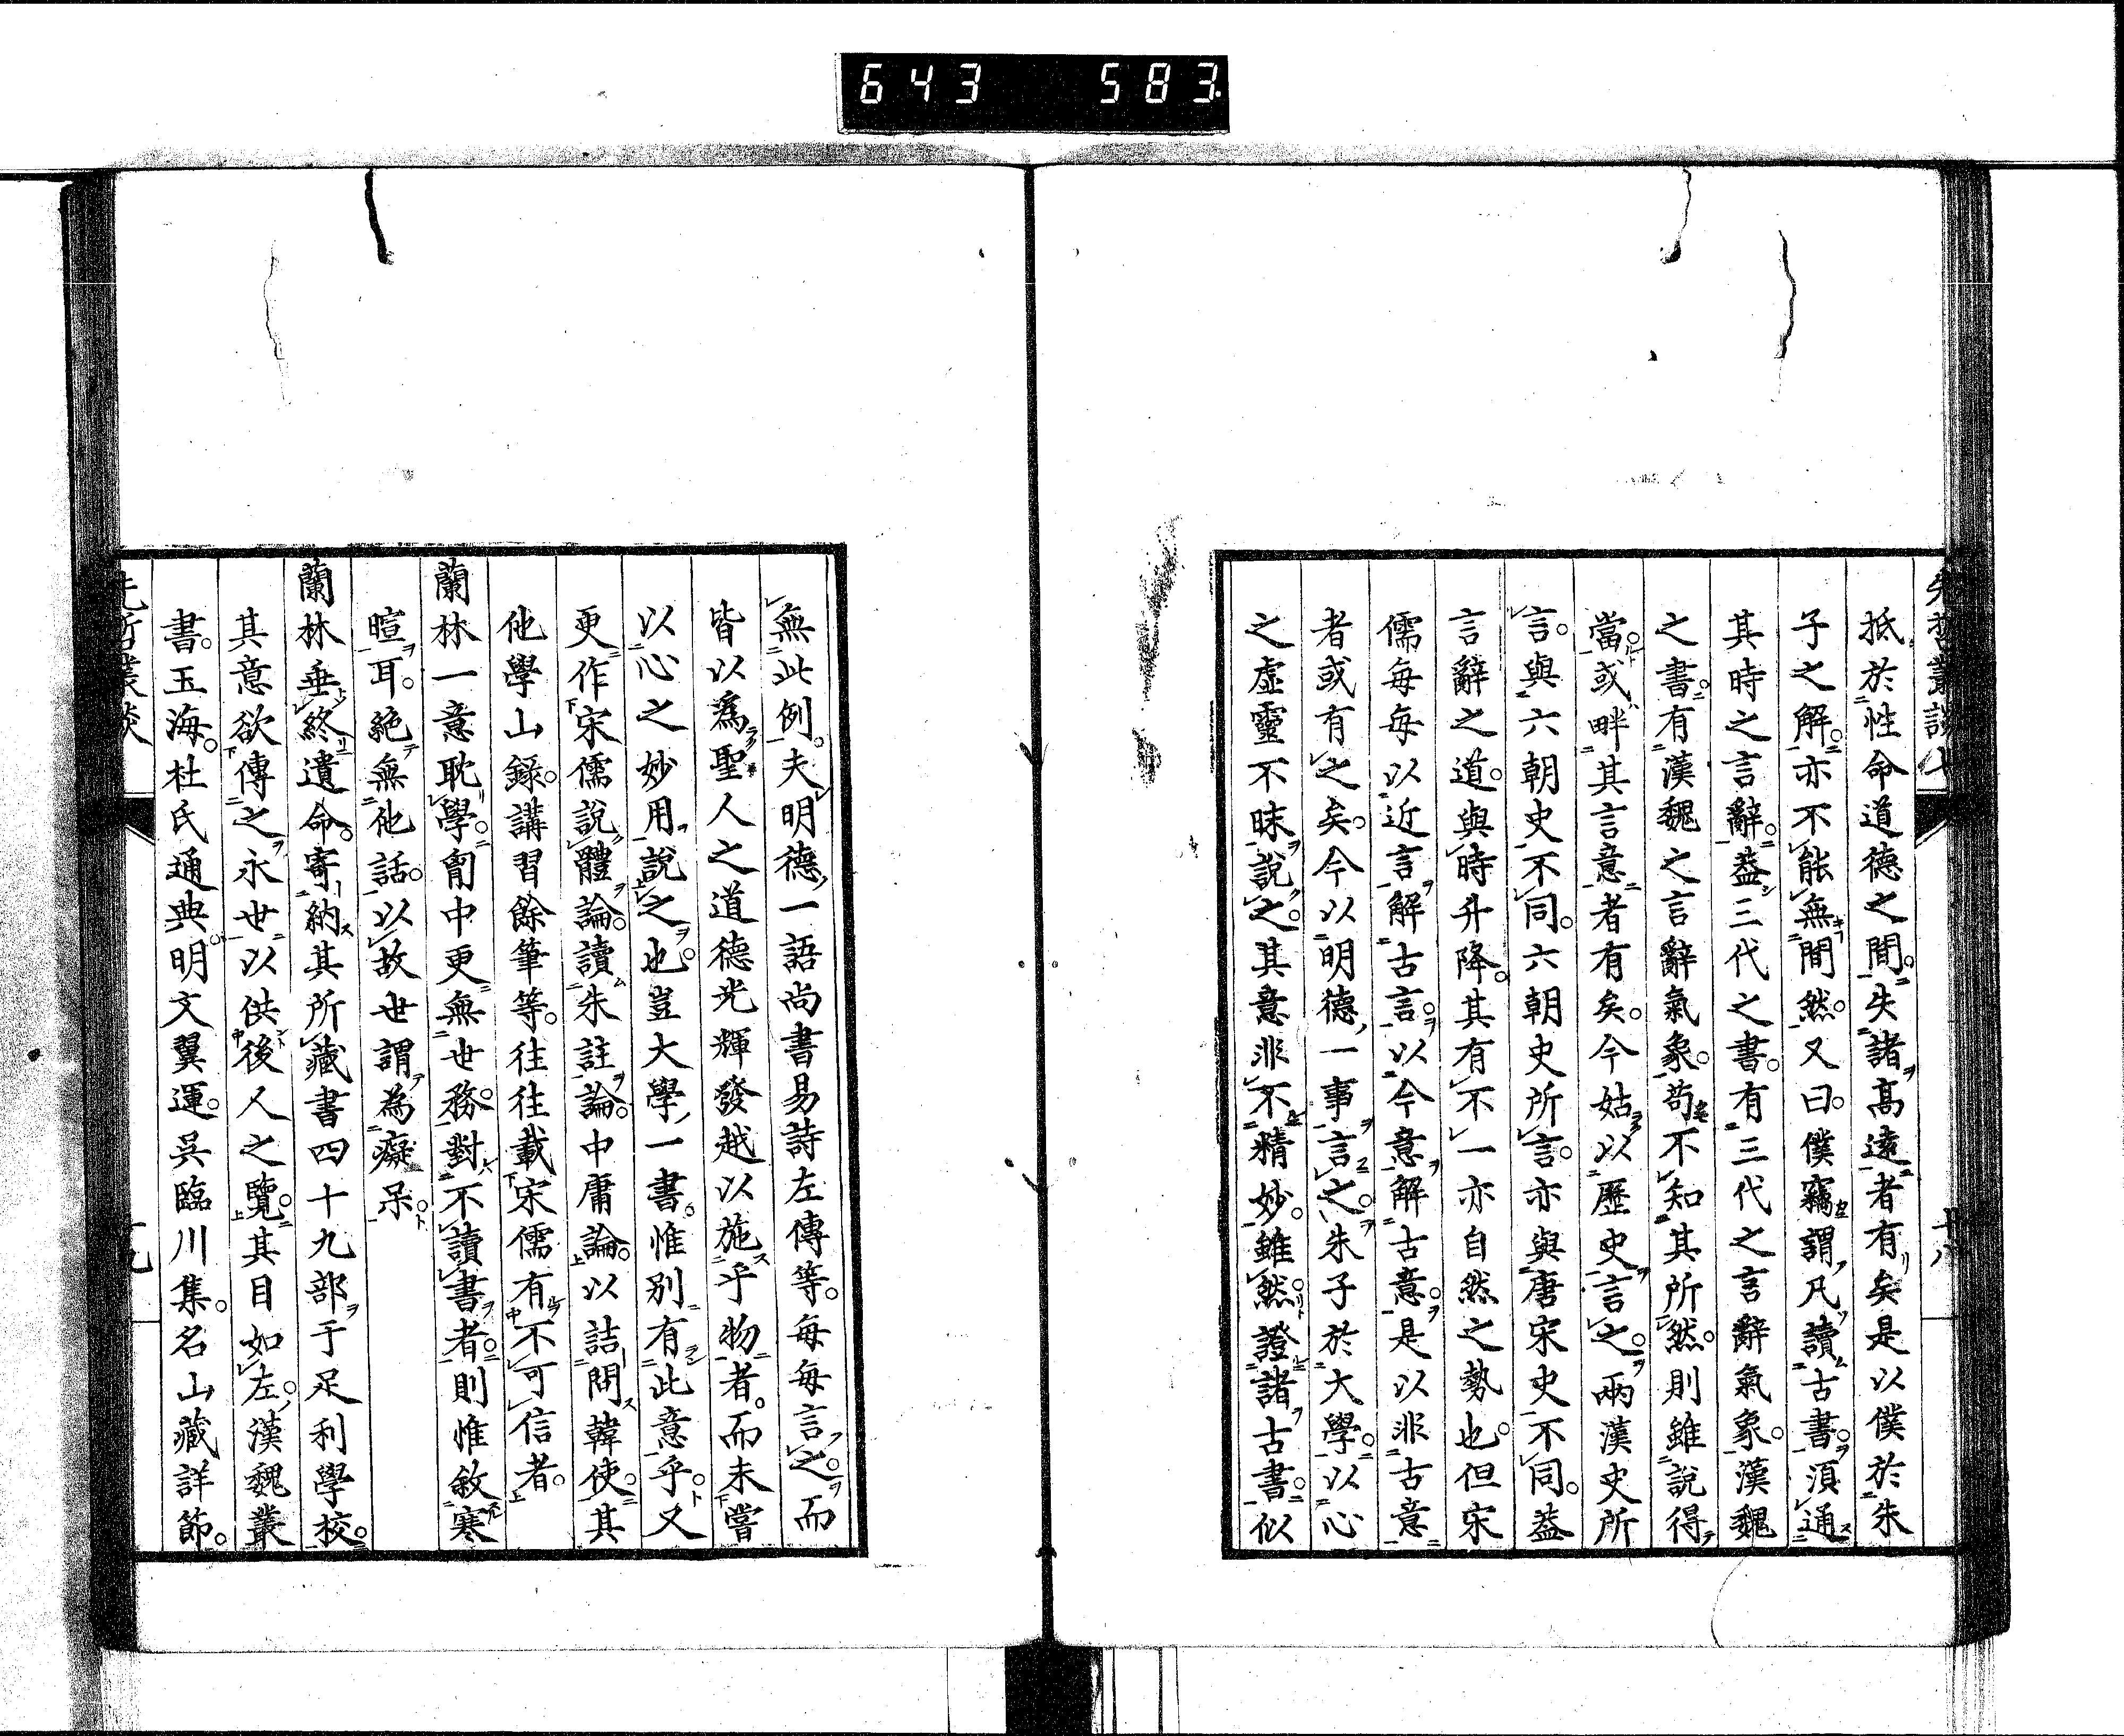 643 583
抵於性命道德之間。失諸高遠者有矣是以僕於朱
子之解。亦不能無間然。又曰。僕竊謂凡讀古書。須通
其時之言辭。蓋三代之書。有三代之言辭氣象。漢魏
之書。有漢魏之言辭氣象。苟不知其所然。則雖說得
當。或畔其言意者有矣。今姑以歷史言之。兩漢史所
言。與六朝史不同。六朝史所言。亦與唐宋史不同。蓋
言辭之道。與時升降。其有不一亦自然之勢也。但宋
儒每每以近言解古言。以今意解古意。是以非古意
者或有之矣。今以明德一事言之。朱子於大學。以心
之虛靈不昧說之。其意非不精妙。雖然。證諸古書。似
無此例。夫明德一語尚書易詩左傳等。每每言之。而
皆以爲聖人之道德光輝發越以施乎物者。而未嘗
以心之妙用說之也。豈大學一書。惟別有此意乎。又
更作宋儒說體論。讀朱註論。中庸論。以詰問韓使。其
他學山錄。講習餘筆等。往往載宋儒有不可信者。
蘭林一意耽學。胷中更無世務。對不讀書者。則惟敘寒
暄耳。絕無他話。以故世謂為癡呆。
蘭林垂終遺命。寄納其所藏書四十九部于足利學校。
其意欲傳之永世以供後人之覽。其目如左。漢魏叢
書。玉海。杜氏通典。明文翼運。吳臨川集。名山藏詳節。